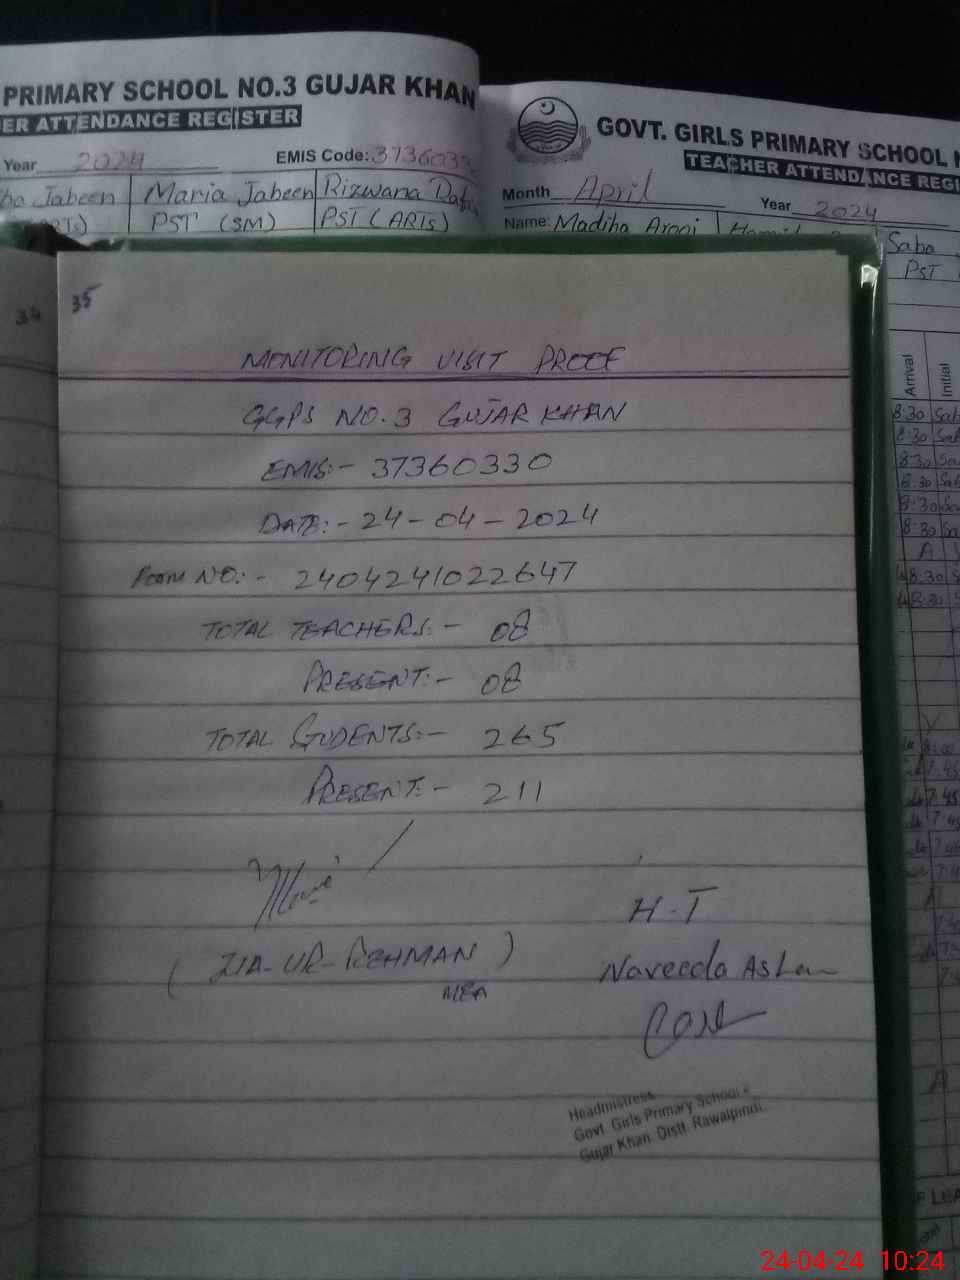 PRIMARY SCHOOL NO.3 GUJAR KHAN
ER ATTENDANCE REGISTER
Year 2024 EMIS Code: 3736033
Jabeen Maria Jabeen Rizwana
PST (SM) PST (ARTS)
GOVT. GIRLS PRIMARY SCHOOL
TEACHER ATTENDANCE REGI
Month April Year 2024
Name: Madiha Arooj
Saba
PST
Arrival Initial
8:30
8:30
8:30
8:30
8:30
8:30
A
8:30
8:30
34
35
MONITORING VISIT PROOF
GGPS NO.3 GUJAR KHAN
EMIS:- 37360330
DATE:- 24-04-2024
Form NO:- 2404241022647
TOTAL TEACHERS:- 08
PRESENT:- 08
TOTAL STUDENTS:- 265
PRESENT:- 211
(ZIA-UR-REHMAN)
MEA
H-T
Naveeda Aslam
Headmistress
Govt. Girls Primary School
Gujar Khan. Distt. Rawalpindi.
24-04-24 10:24